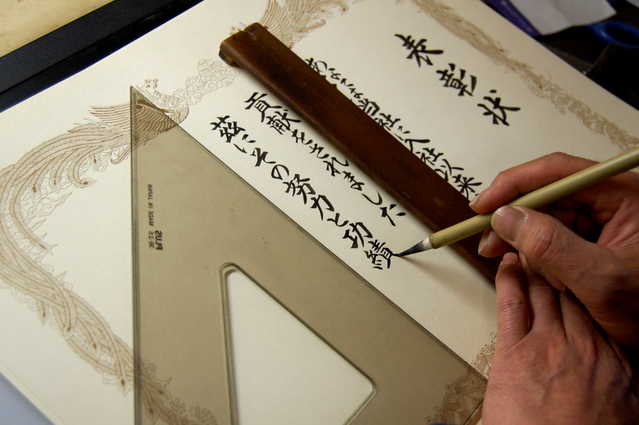 表彰状
あなたは当社に入社以来
貢献をされました
茲にその努力と功績
PLUS
MADE IN JAPAN